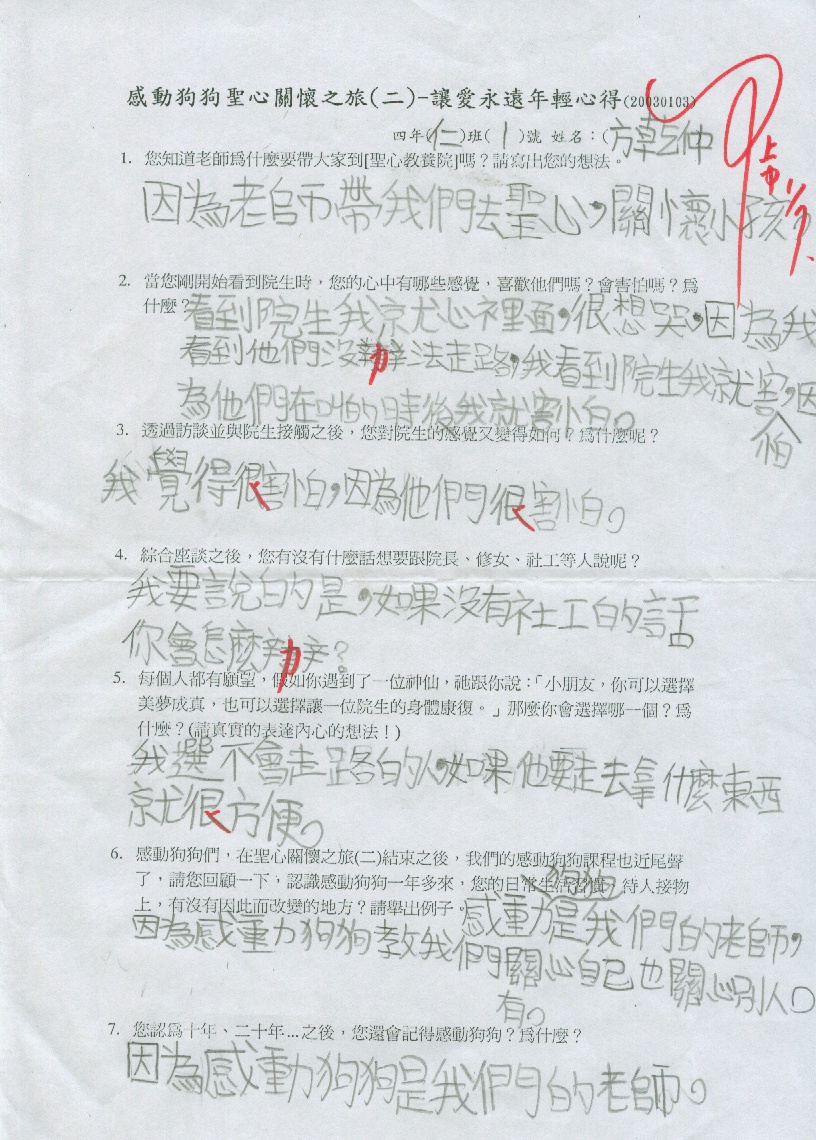 感動狗狗聖心關懷之旅(二)-讓愛永遠年輕心得(20030103)
四年(仁)班(1)號 姓名：(方乾仲
1. 您知道老師爲什麼要帶大家到[聖心教養院]嗎？請寫出您的想法。
因為老師帶我們去聖心，關懷小孩。
2. 當您剛開始看到院生時，您的心中有哪些感覺，喜歡他們嗎？會害怕嗎？爲
什麼？看到院生我京尤心裡面，很想哭，因為我
看到他們沒辦法走路，我看到院生我就害，因
怕
為他們在叫的時後我就害怕。
3. 透過訪談並與院生接觸之後，您對院生的感覺又變得如何？爲什麼呢？
我覺得很害怕，因為他們很害怕。
4. 綜合座談之後，您有沒有什麼話想要跟院長、修女、社工等人說呢？
我要說的是，如果沒有社工的話
你會怎麼辦？
5. 每個人都有願望，假如你遇到了一位神仙，祂跟你說：「小朋友，你可以選擇
美夢成真，也可以選擇讓一位院生的身體康復。」那麼你會選擇哪一個？爲
什麼？(請真實的表達內心的想法！)
我選不會走路的人，如果他要走去拿什麼東西
就很方便。
6. 感動狗狗們，在聖心關懷之旅(二)結束之後，我們的感動狗狗課程也近尾聲
了，請您回顧一下，認識感動狗狗一年多來，您的日常生活習慣，待人接物
狗狗
上，有沒有因此而改變的地方？請舉出例子。感動是我們的老師，
因為感動狗狗教我們關心自己也關心別人。
有。
7. 您認爲十年、二十年...之後，您還會記得感動狗狗？爲什麼？
因為感動狗狗是我們的老師。